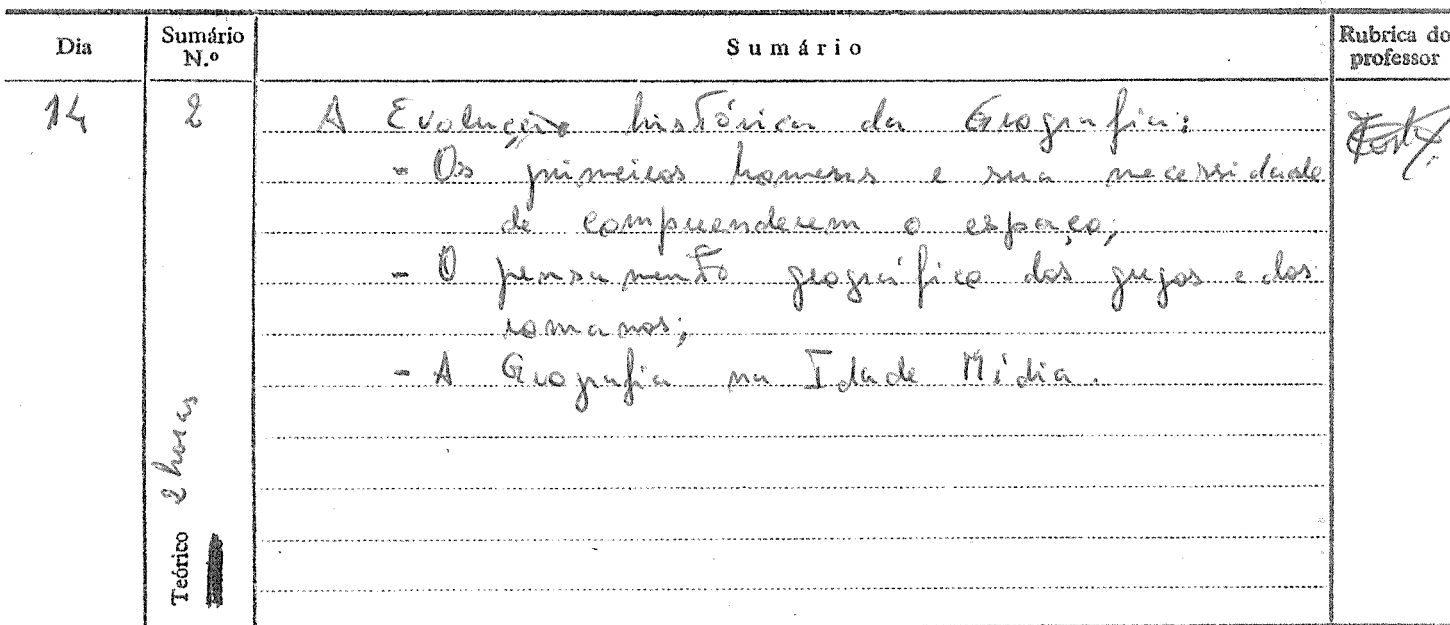 Dia Sumário N.º Sumário Rubrica do professor
14 2 A Evolução histórica da Geografia:
- Os primeiros homens e sua necessidade
de compreenderem o espaço;
- O pensamento geográfico dos gregos e dos
romanos;
- A Geografia na Idade Média.
Teórico 2 horas